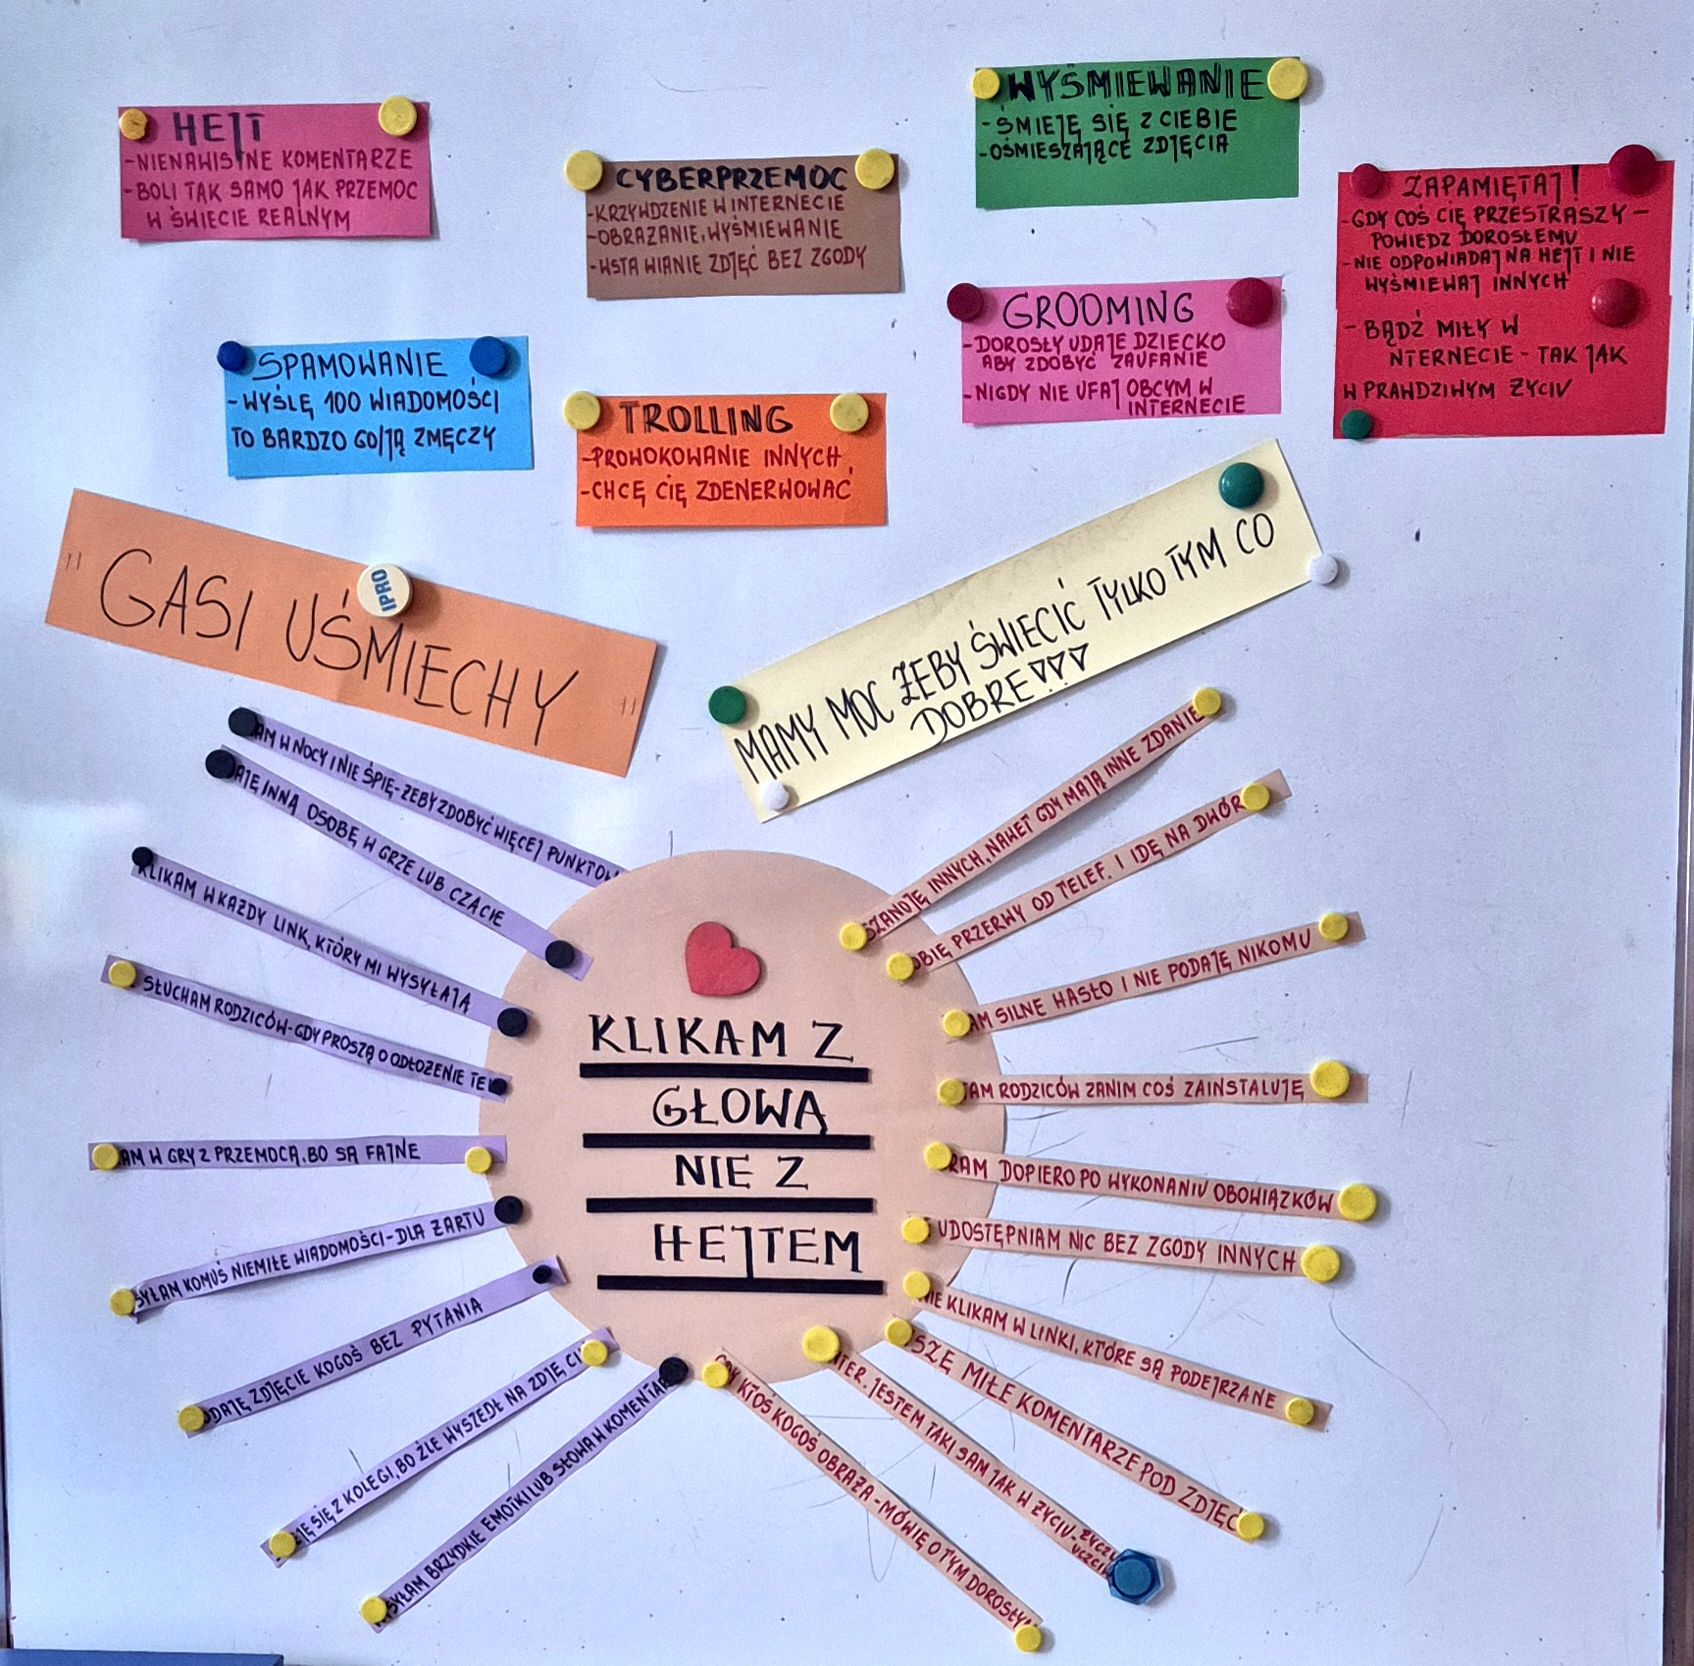 HEJT
-NIENAWISTNE KOMENTARZE
-BOLI TAK SAMO JAK PRZEMOC
W ŚWIECIE REALNYM
CYBERPRZEMOC
-KRZYWDZENIE W INTERNECIE
-OBRAŻANIE, WYŚMIEWANIE
-WSTAWIANIE ZDJĘĆ BEZ ZGODY
WYŚMIEWANIE
-ŚMIEJĘ SIĘ Z CIEBIE
-OŚMIESZAJĄCE ZDJĘCIA
ZAPAMIĘTAJ!
-GDY COŚ CIĘ PRZESTRASZY-
POWIEDZ DOROSŁEMU
-NIE ODPOWIADAJ NA HEJT I NIE
WYŚMIEWAJ INNYCH
-BĄDŹ MIŁY W
NTERNECIE-TAK JAK
W PRAWDZIWYM ŻYCIU
SPAMOWANIE
-WYŚLĘ 100 WIADOMOŚCI
TO BARDZO GO/JĄ ZMĘCZY
TROLLING
-PROWOKOWANIE INNYCH,
-CHCĘ CIĘ ZDENERWOWAĆ
GROOMING
-DOROSŁY UDAJE DZIECKO
ABY ZDOBYĆ ZAUFANIE
-NIGDY NIE UFAJ OBCYM W
INTERNECIE
"GASI UŚMIECHY"
IPRO
MAMY MOC ŻEBY ŚWIECIĆ TYLKO TYM CO
DOBRE
AM W NOCY I NIE ŚPIĘ-ŻEBY ZDOBYĆ WIĘCEJ PUNKTÓW
AJĘ INNĄ OSOBĘ W GRZE LUB CZACIE
KLIKAM W KAŻDY LINK, KTÓRY MI WYSYŁAJĄ
SŁUCHAM RODZICÓW-GDY PROSZĄ O ODŁOŻENIE TEL
AM W GRY Z PRZEMOCĄ, BO SĄ FAJNE
SYŁAM KOMUŚ NIEMIŁE WIADOMOŚCI-DLA ŻARTU
ODAJĘ ZDJĘCIE KOGOŚ BEZ PYTANIA
JĘ SIĘ Z KOLEGI, BO ŹLE WYSZEDŁ NA ZDJĘCI
SYŁAM BRZYDKIE EMOTKI LUB SŁOWA W KOMENTA
KLIKAM Z
GŁOWĄ
NIE Z
HEJTEM
SZANUJĘ INNYCH, NAWET GDY MAJĄ INNE ZDANIE
OBIĘ PRZERWY OD TELEF. I IDĘ NA DWÓR
AM SILNE HASŁO I NIE PODAJĘ NIKOMU
AM RODZICÓW ZANIM COŚ ZAINSTALUJĘ
RAM DOPIERO PO WYKONANIU OBOWIĄZKÓW
UDOSTĘPNIAM NIC BEZ ZGODY INNYCH
NIE KLIKAM W LINKI, KTÓRE SĄ PODEJRZANE
SZĘ MIŁE KOMENTARZE POD ZDJĘĆ
NTER. JESTEM TAKI SAM JAK W ŻYCIU-
GDY KTOŚ KOGOŚ OBRAŻA-MÓWIĘ O TYM DOROSŁYM